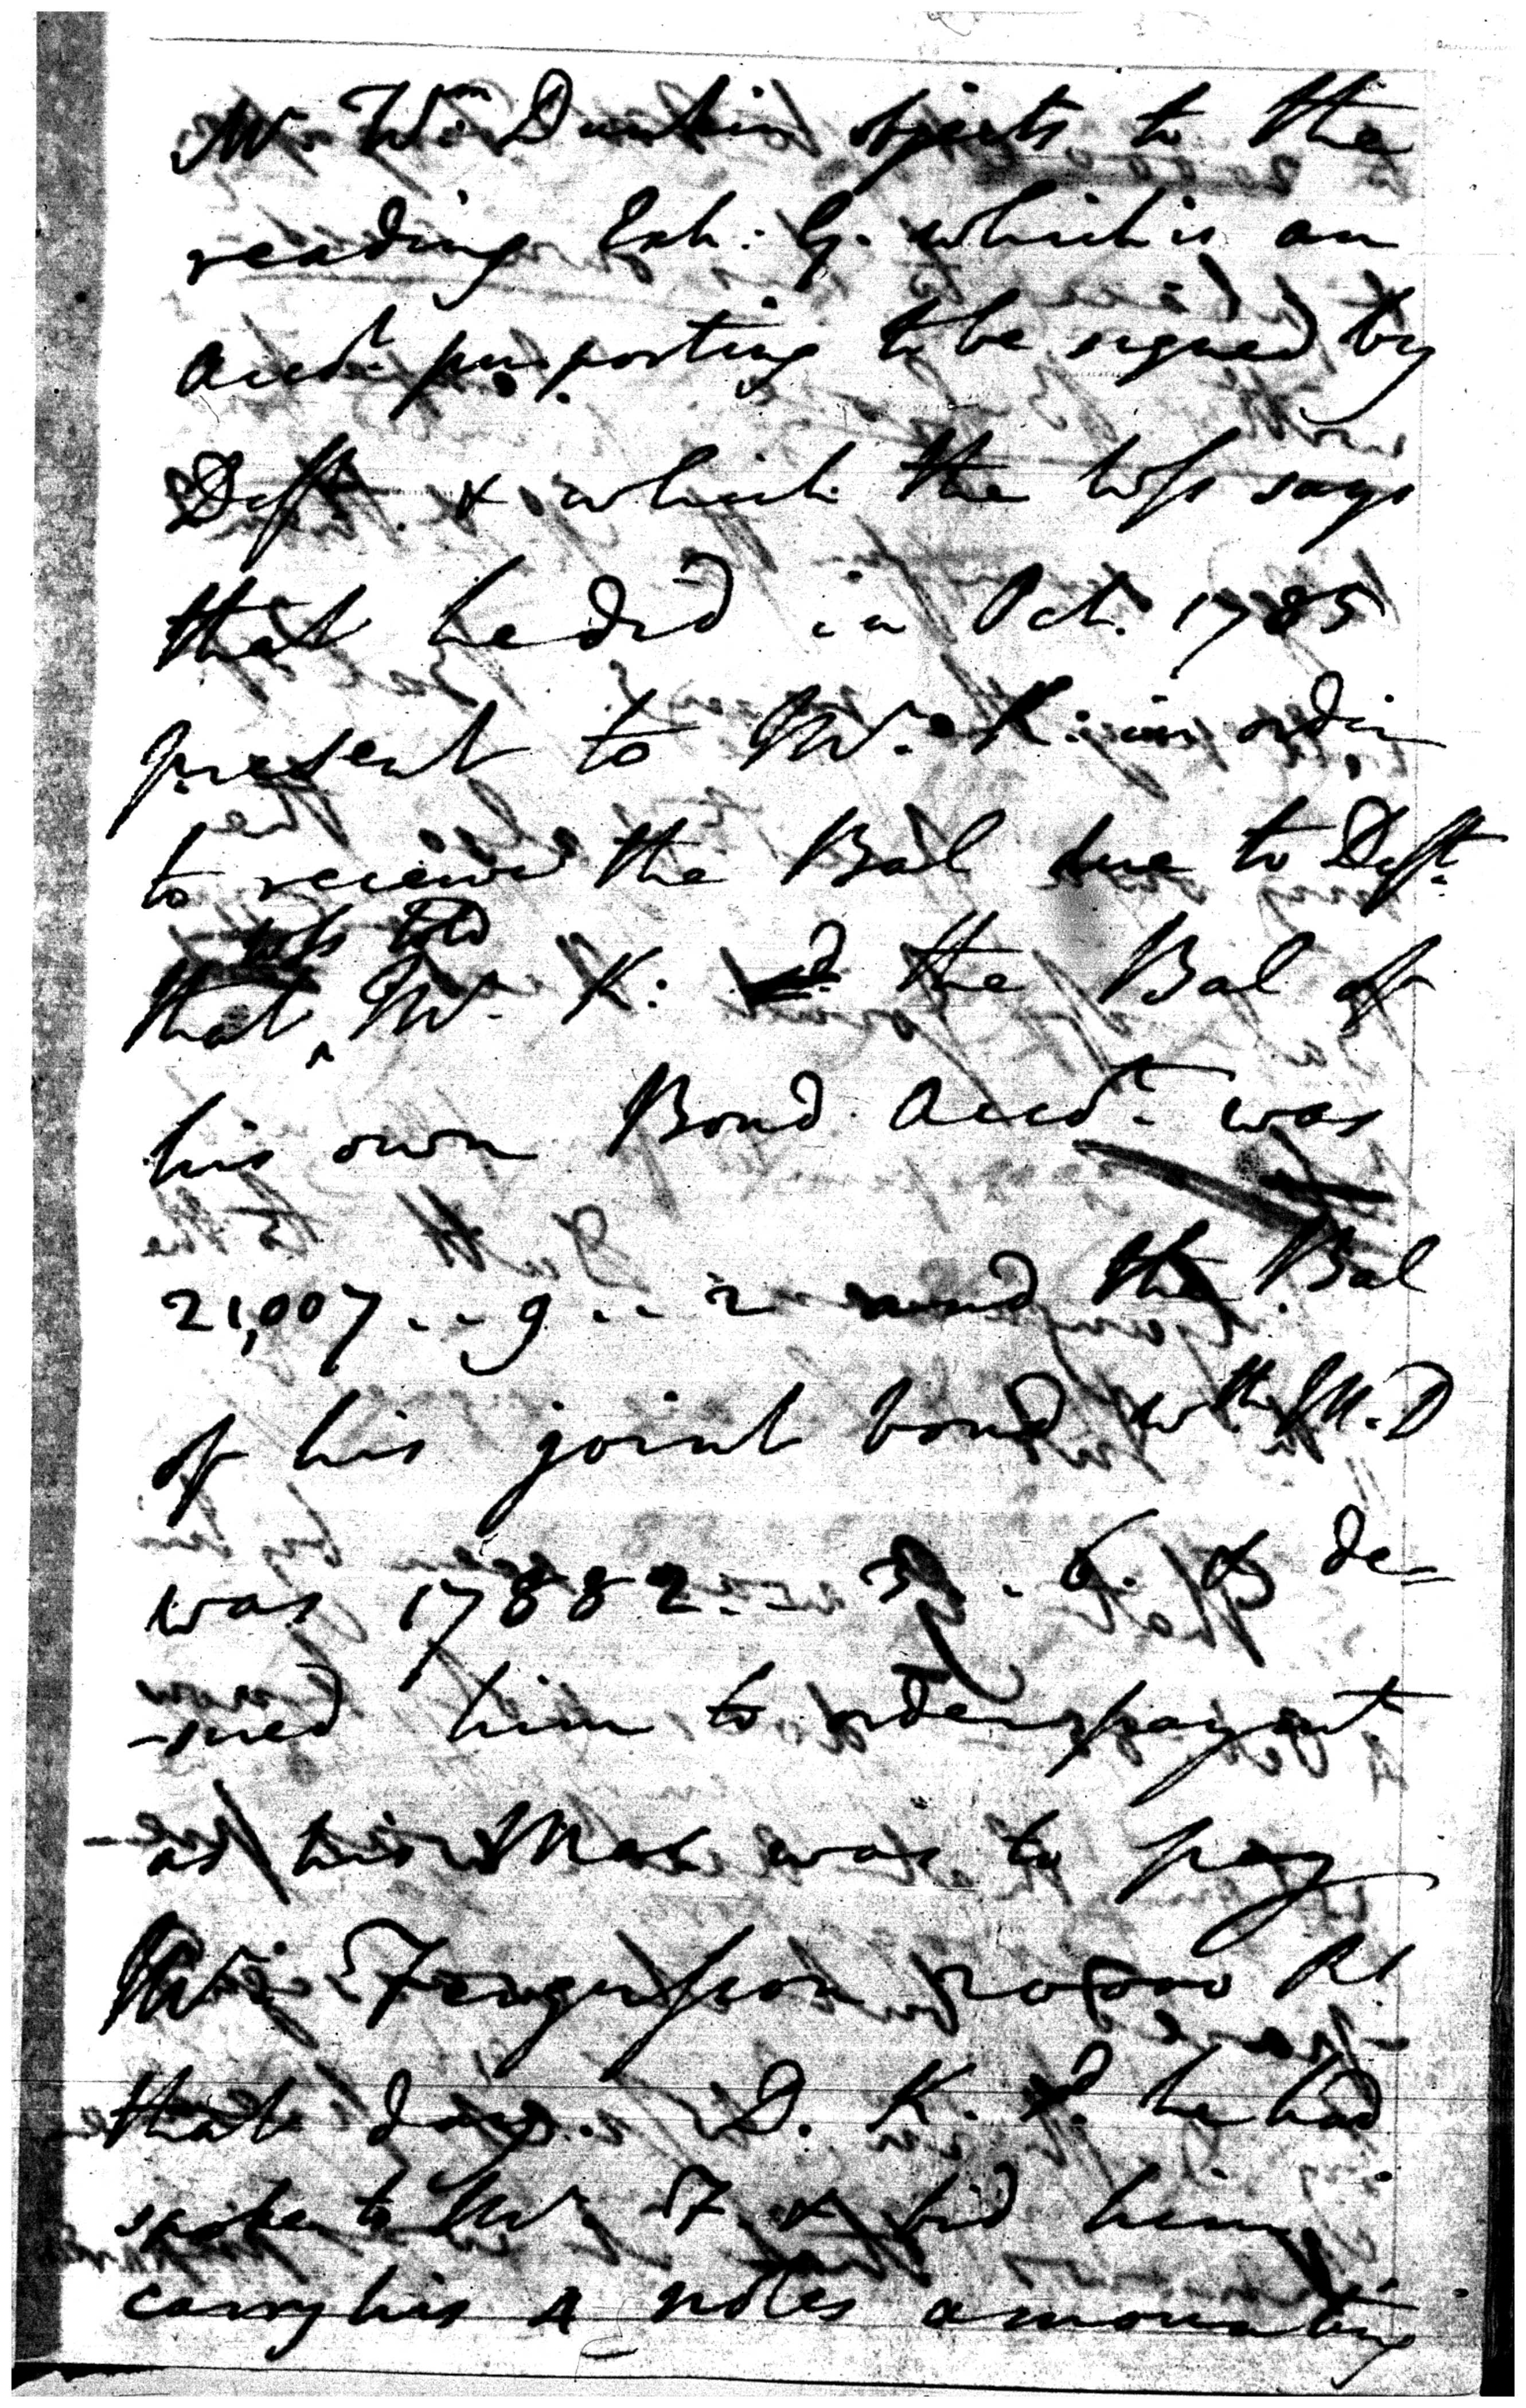 Mr. Wm. Dunkin objects to the
reading Exh. G. which is an
Acct. purporting to be signed by
Deft. & which the wss says
that he did in Oct. 1785
present to Mr. K: in order
to receive the Bal due to Deft.
wss told
that Mr. K: the Bal of
his own Bond Acct. was
21,007..9..2 and the Bal
of his joint bond wth. Mr. D
was 17882.. 6. & de=
-sired him to order payment
as his was to pay
Mr. Fergusson 20000 Rs.
that day. D. K. sd. he had
spoken to Mr. F. & bid him
carry his 4 notes amounting